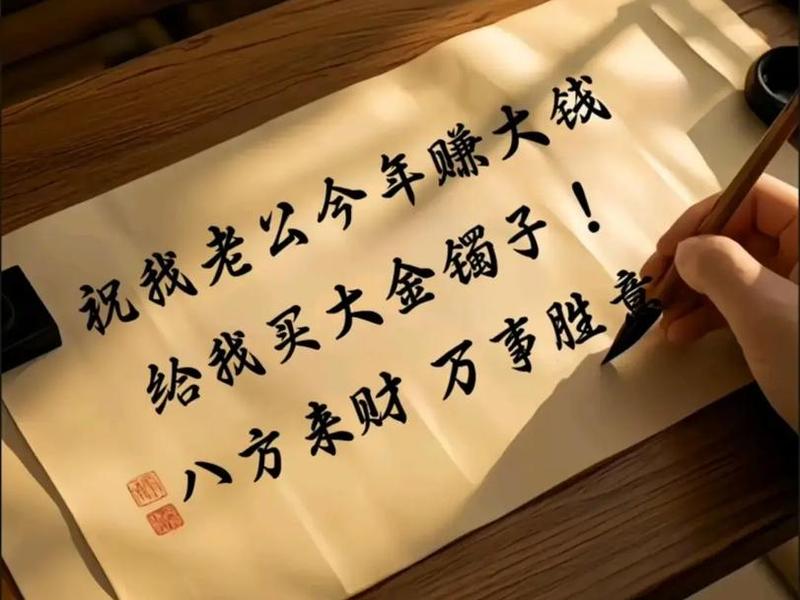 祝我老公今年赚大钱
给我买大金镯子！
八方来财 万事胜意